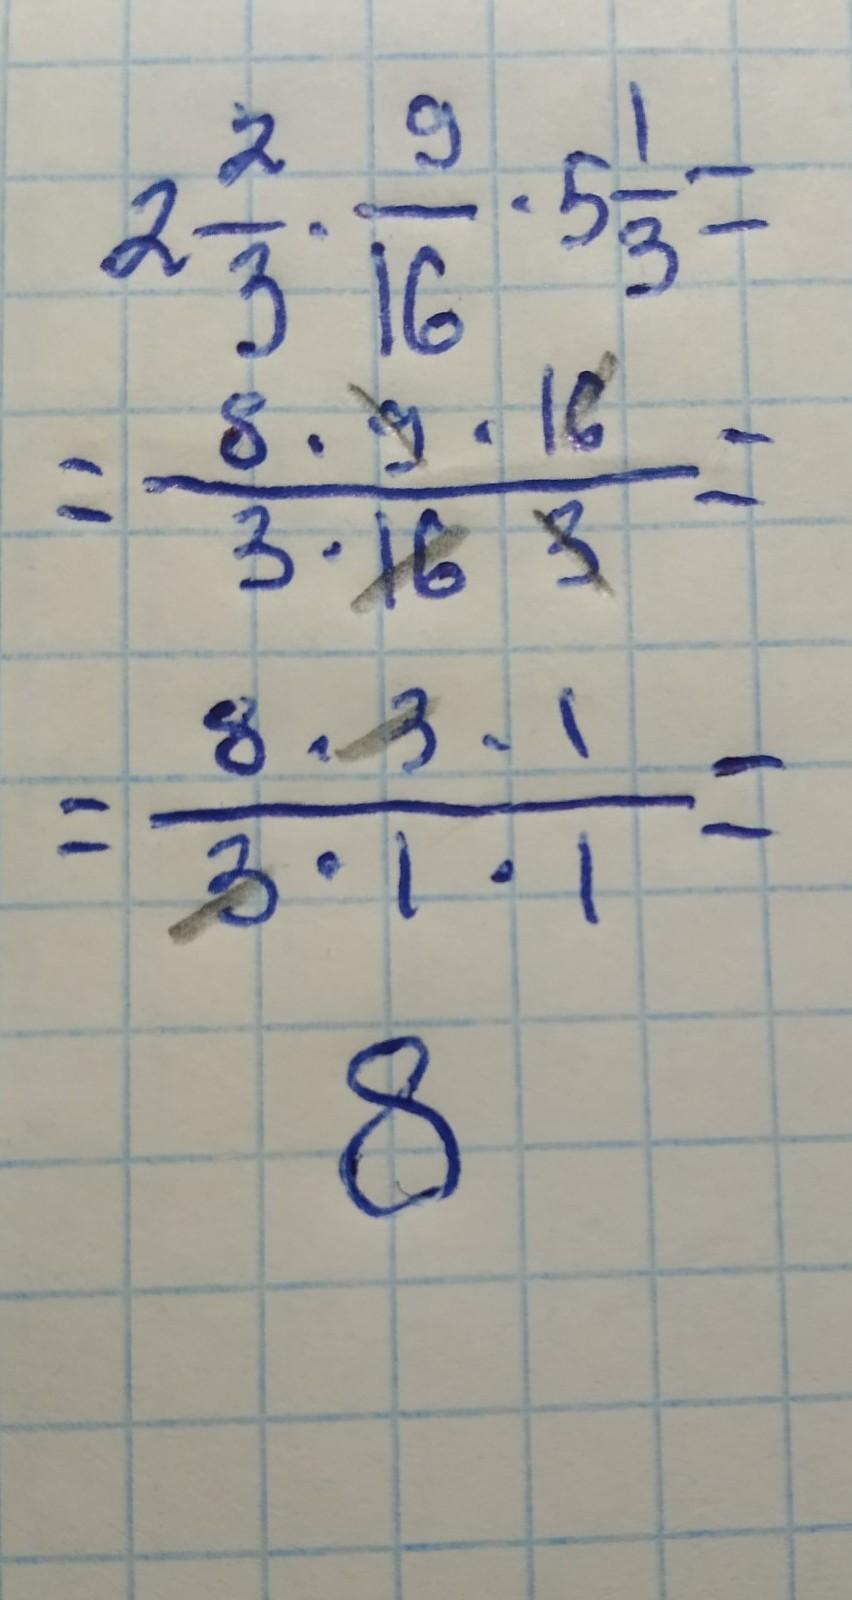 2 2/3 · 9/16 · 5 1/3 =
= 8 · 9 · 16 / 3 · 16 3 =
= 8 · 3 · 1 / 3 · 1 · 1 =
8